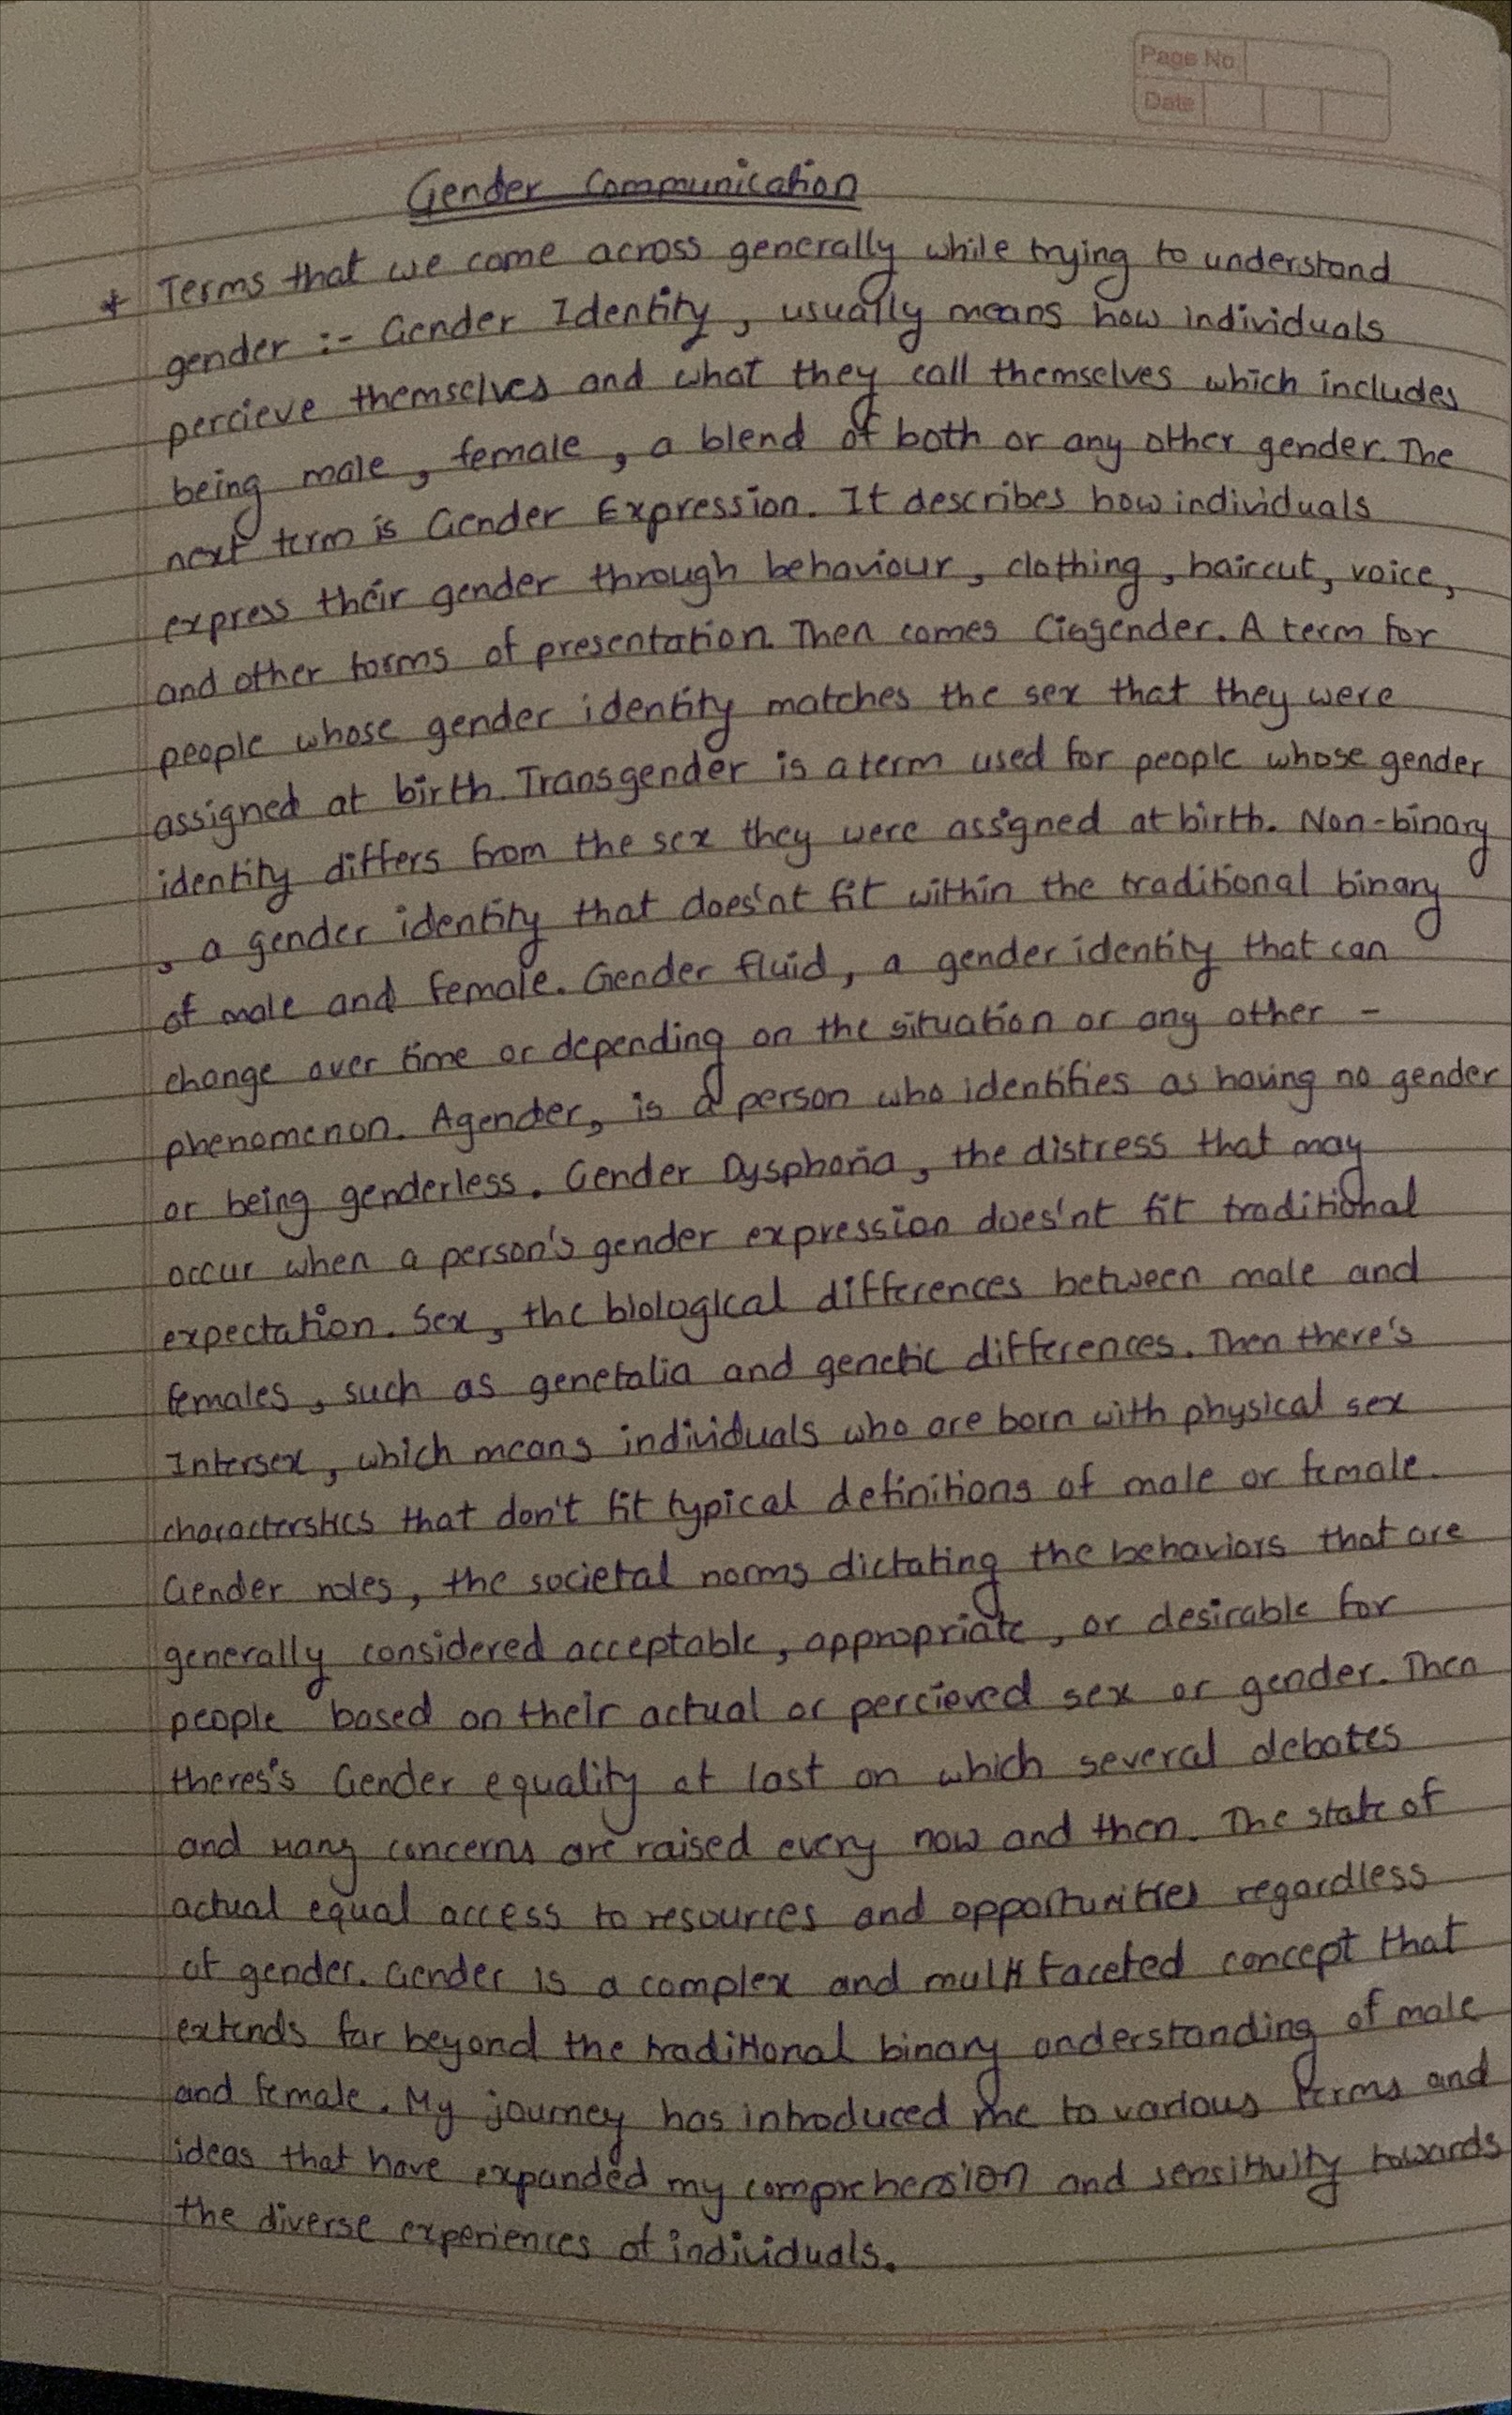 Page No
Date
Gender Communication
* Terms that we come across generally while trying to understand
gender :- Gender Identity, usually means how individuals
percieve themselves and what they call themselves which includes
being male, female, a blend of both or any other gender. The
next term is Gender Expression. It describes how individuals
express their gender through behaviour, clothing, haircut, voice,
and other forms of presentation. Then comes Cisgender. A term for
people whose gender identity matches the sex that they were
assigned at birth. Transgender is a term used for people whose gender
identity differs from the sex they were assigned at birth. Non-binary
, a gender identity that does'nt fit within the traditional binary
of male and female. Gender fluid, a gender identity that can
change over time or depending on the situation or any other -
phenomenon. Agender, is a person who identifies as having no gender
or being genderless. Gender Dysphoria, the distress that may
occur when a person's gender expression does'nt fit traditional
expectation. Sex, the biological differences between male and
females, such as genetalia and genetic differences. Then there's
Intersex, which means individuals who are born with physical sex
characterstics that don't fit typical definitions of male or female.
Gender roles, the societal norms dictating the behaviors that are
generally considered acceptable, appropriate, or desirable for
people based on their actual or percieved sex or gender. Then
theres's Gender equality at last on which several debates
and many concerns are raised every now and then. The state of
actual equal access to resources and opportunities regardless
of gender. Gender is a complex and multifaceted concept that
extends far beyond the traditional binary understanding of male
and female. My journey has introduced me to various terms and
ideas that have expanded my comprehension and sensitivity towards
the diverse experiences of individuals.